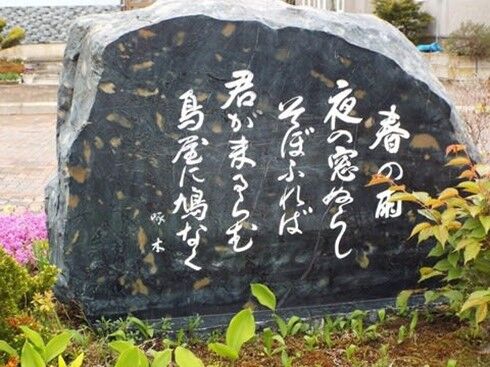 春の雨
夜の窓ぬらし
そぼふれば
君が来るらむ
鳥屋に鳩なく
啄木